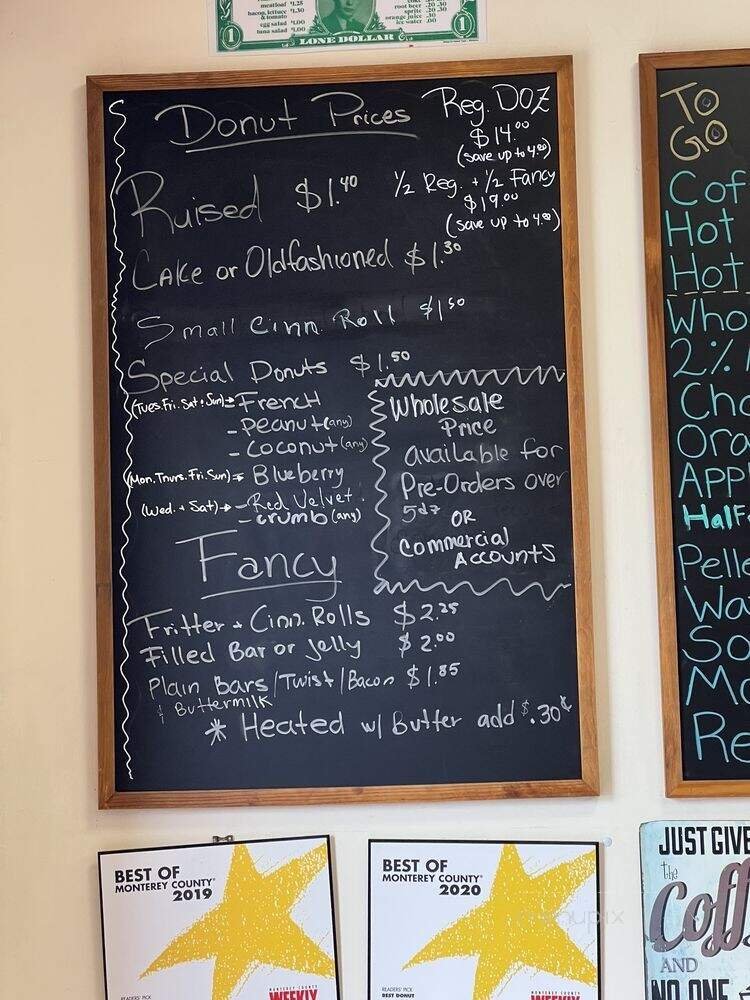 meatloaf $1.25
bacon, lettuce & tomato $1.30
egg salad $1.00
tuna salad $1.00
root beer .20 .30
sprite .20 .30
orange juice .30
ice water .00
1 LONE DOLLAR 1
Donut Prices
Reg. DOZ
$14.00
(save up to 4.00)
1/2 Reg. + 1/2 Fancy
$19.00
(save up to 4.00)
Raised $1.40
Cake or Oldfashioned $1.30
Small Cinn. Roll $1.50
Special Donuts $1.50
(Tues. Fri. Sat + Sun) → - French
- Peanut (any)
- Coconut (any)
(Mon. Thurs. Fri. Sun) → - Blueberry
(Wed. + Sat) → - Red Velvet
- crumb (any)
Wholesale
Price
available for
Pre-Orders over
5dz OR
Commercial
Accounts
Fancy
Fritter + Cinn. Rolls $2.25
Filled Bar or Jelly $2.00
Plain Bars/Twist/Bacon $1.85
& Buttermilk
* Heated w/ Butter add $.30¢
TO
GO
Cof
Hot
Hot
Who
2%
Cho
Ora
APP
Half
Pelle
Wa
So
Mo
Re
BEST OF
MONTEREY COUNTY
2019
READERS' PICK
MONTEREY COUNTY
WEEKLY
BEST OF
MONTEREY COUNTY
2020
READERS' PICK
BEST DONUT
MONTEREY COUNTY
WEEKLY
JUST GIVE
the
Coff
AND
NO ONE
menupix